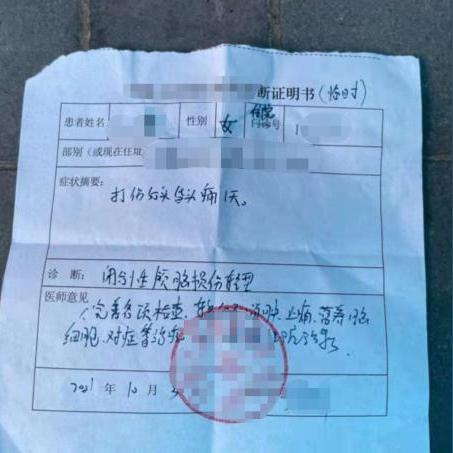 断证明书(临时)
患者姓名 性别 女 住院 门诊号 1
部别(或现在住址
症状摘要:
打伤头头痛1天。
诊 断: 闭合性颅脑损伤轻型
医师意见
完善各项检查, 消肿止痛、营养脑
细胞、对症等治疗
2021 年 10 月